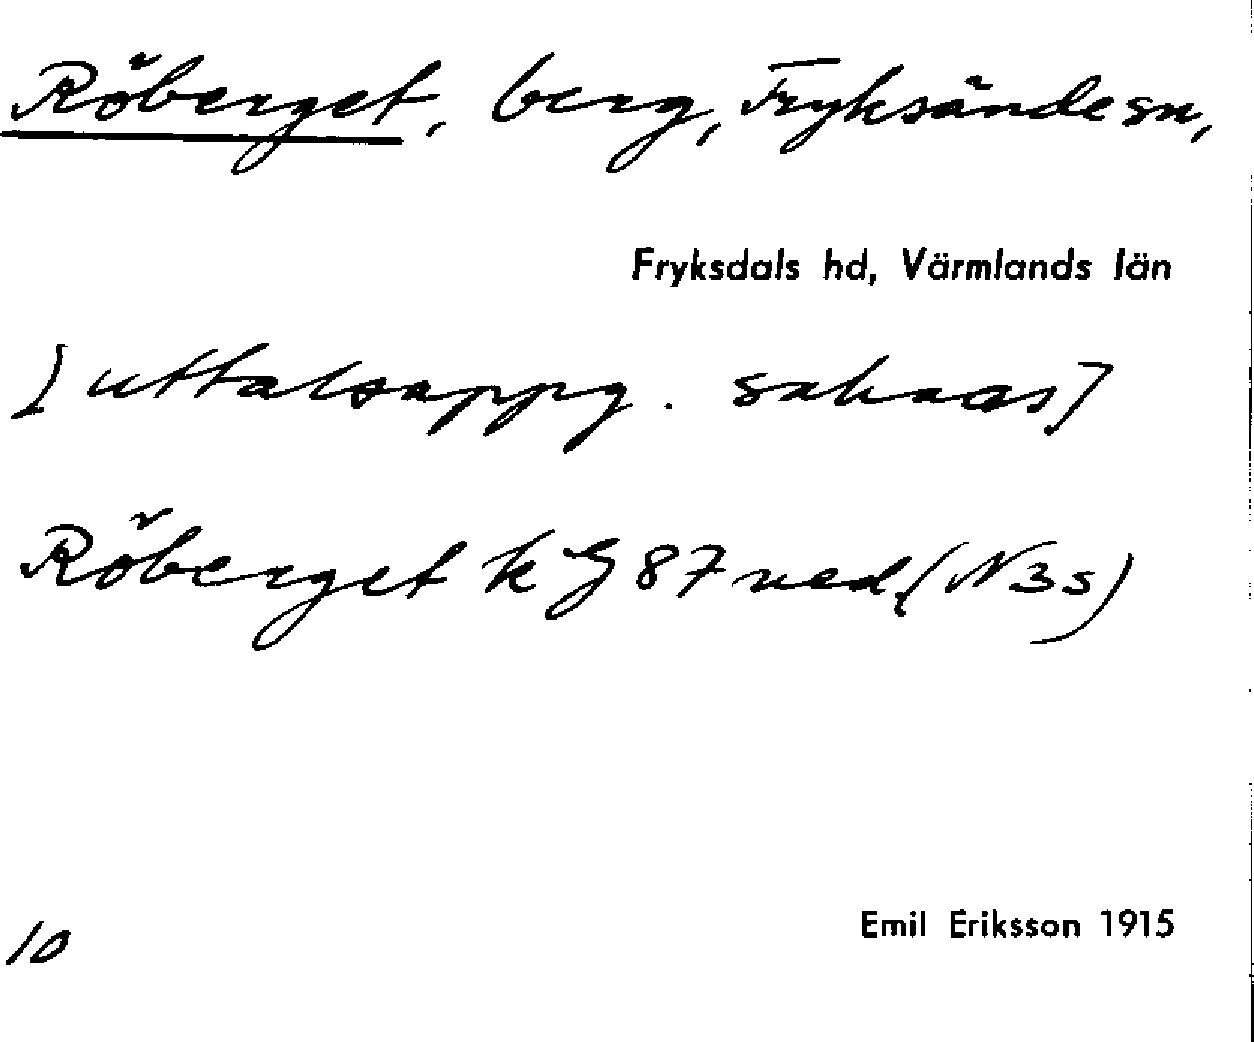 Röberget, berg, Fryksände sn,
Fryksdals hd, Värmlands län
[uttalsuppg. saknas]
Röberget k G 87 ned. (N 3 s)
Emil Eriksson 1915
10